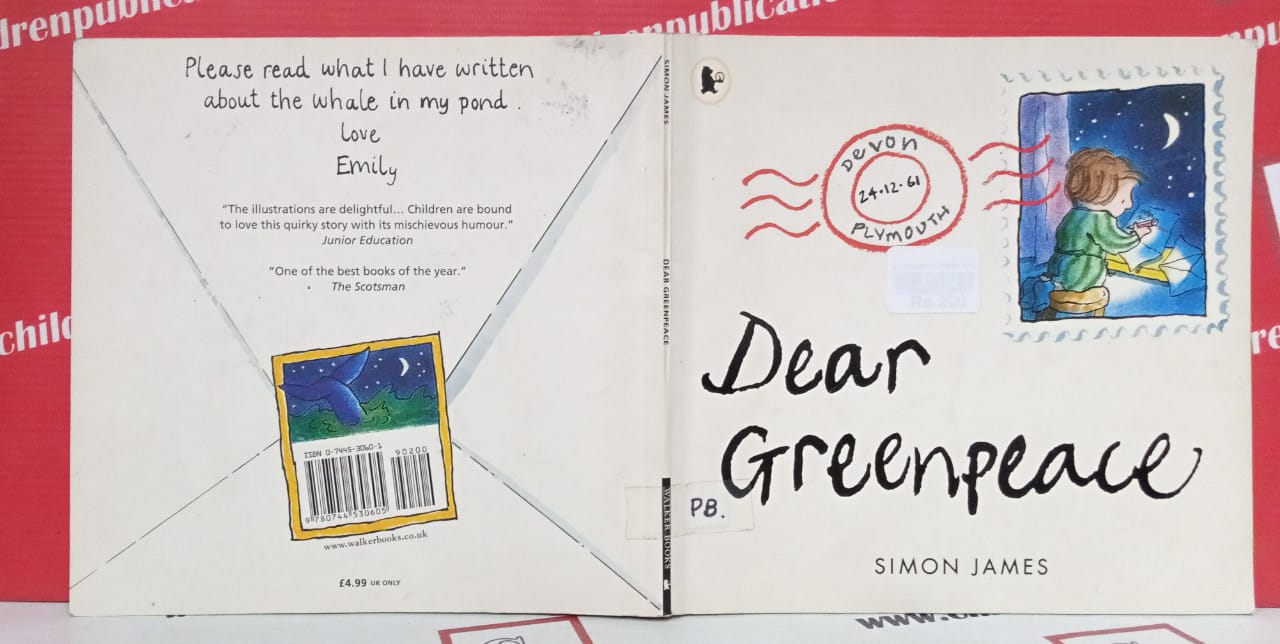 drenpublic
drenpublication
childrenpublication
Please read what I have written
about the whale in my pond .
love
Emily
“The illustrations are delightful… Children are bound
to love this quirky story with its mischievous humour.”
Junior Education
“One of the best books of the year.”
The Scotsman
ISBN 0-7445-3060-1
90200
9 780744 530605
www.walkerbooks.co.uk
£4.99 UK ONLY
SIMON JAMES
DEAR GREENPEACE
WALKER BOOKS
DEVON
24·12·61
PLYMOUTH
Rs.200
Dear
Greenpeace
PB.
SIMON JAMES